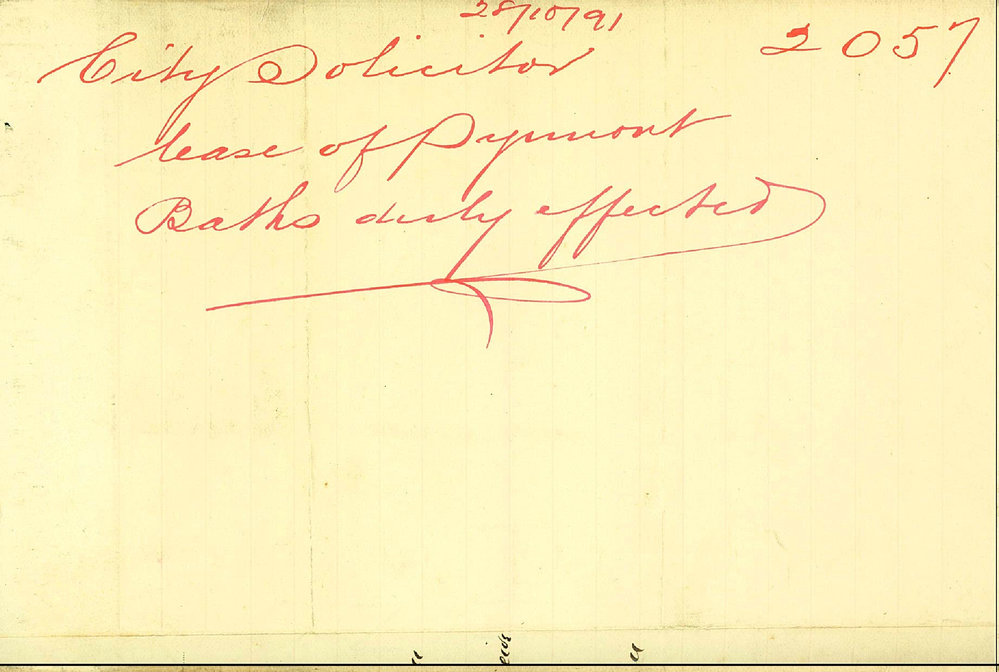 28/10/91
2057
City Solicitor
lease of Pyrmont
Baths duly effected